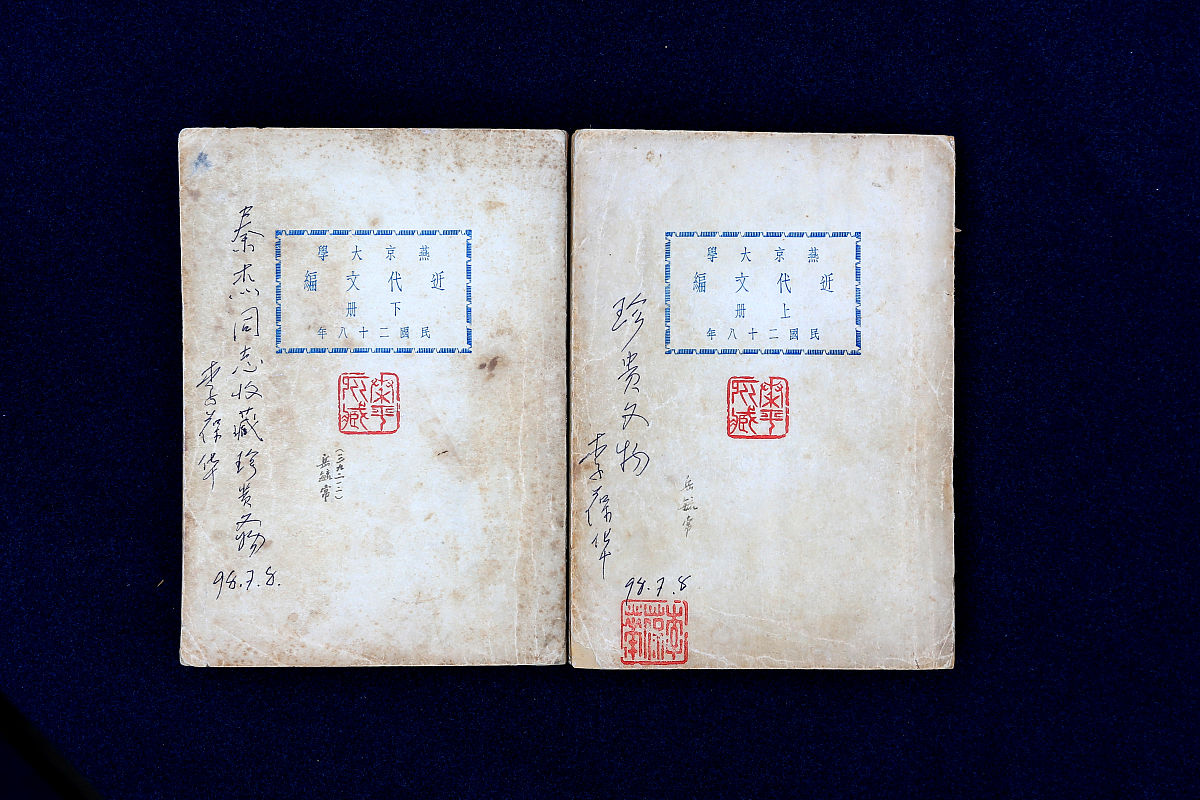 燕京大學
近代文編
上冊
民國二十八年
珍贵文物
李葆华
98.7.8
李葆華
燕京大學
近代文編
下冊
民國二十八年
秦杰同志收藏珍贵文物
李葆华
98.7.8.